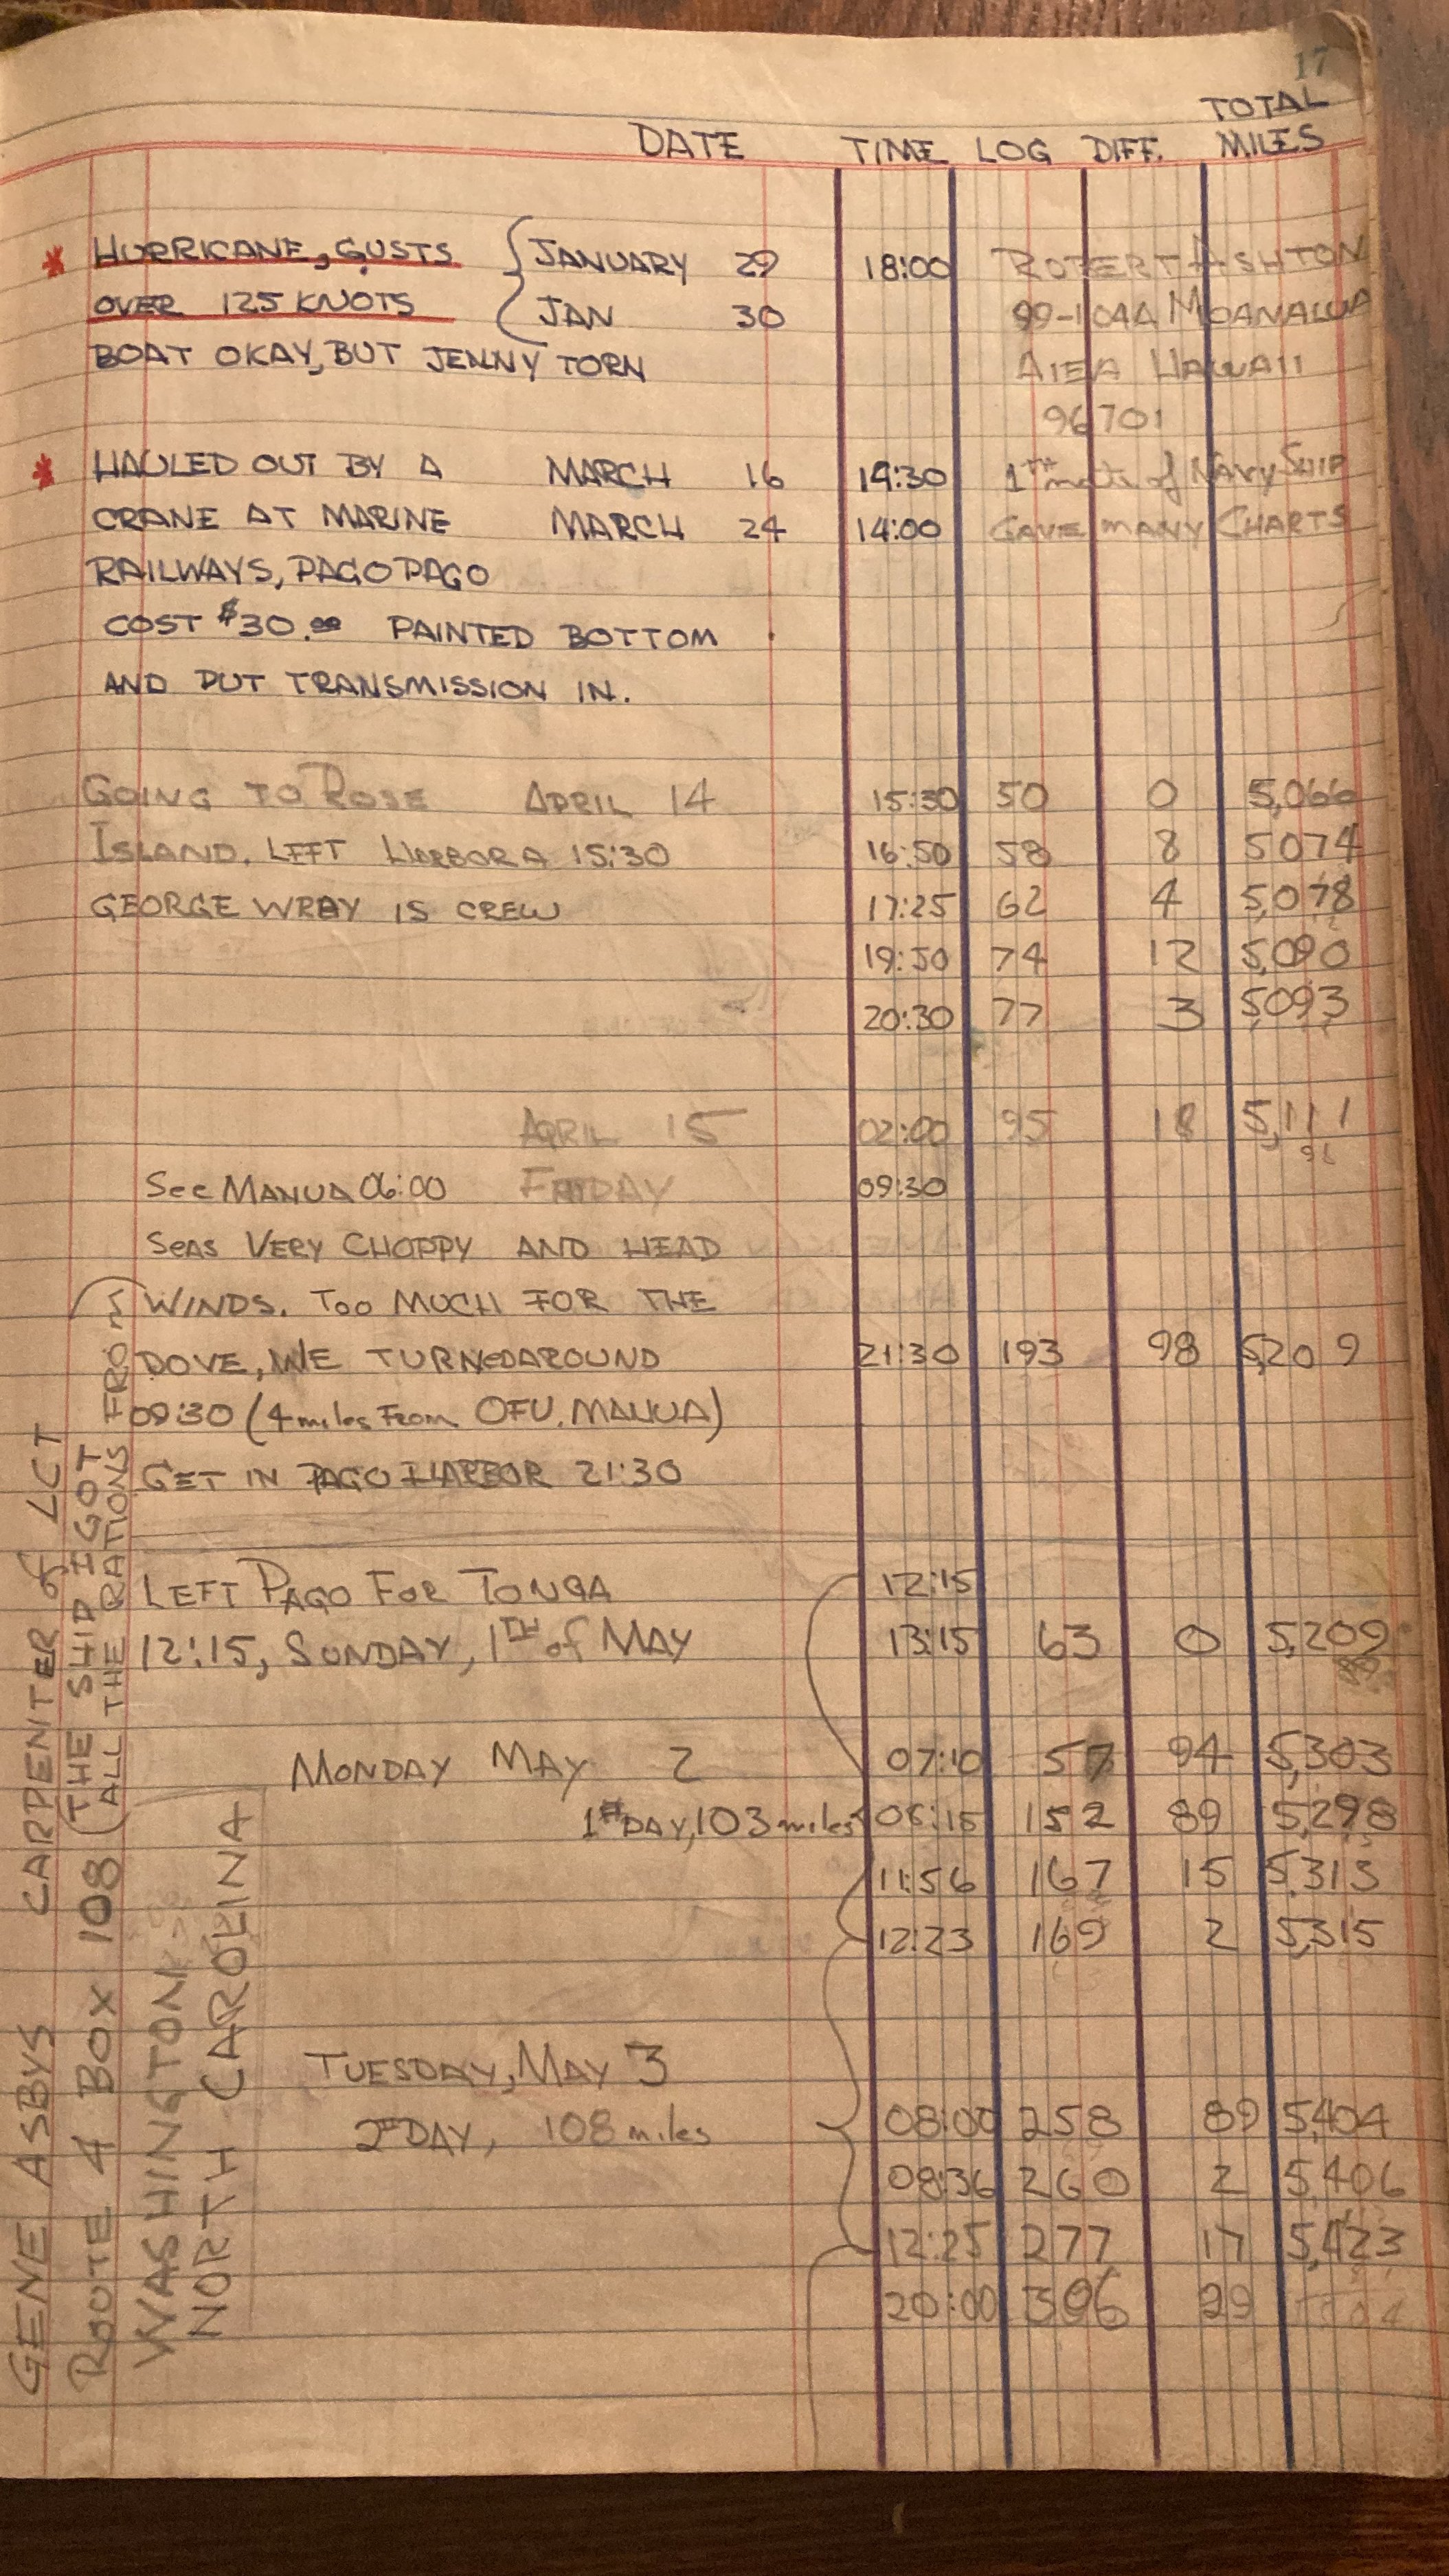 17
TOTAL
DATE TIME LOG DIFF. MILES
* HURRICANE, GUSTS { JANUARY 29 18:00 ROBERT ASHTON
OVER 125 KNOTS JAN 30 99-104A MOANALUA
BOAT OKAY, BUT JENNY TORN AIEA HAWAII
96701
* HAULED OUT BY A MARCH 16 14:30 1TH mate of NAVY SHIP
CRANE AT MARINE MARCH 24 14:00 GAVE MANY CHARTS
RAILWAYS, PAGO PAGO
COST $30.00 PAINTED BOTTOM
AND PUT TRANSMISSION IN.
GOING TO ROSE APRIL 14 15:30 50 0 5,066
ISLAND, LEFT HARBOR A 15:30 16:50 58 8 5074
GEORGE WRAY IS CREW 17:25 62 4 5,078
19:50 74 12 5,090
20:30 77 3 5093
APRIL 15 02:00 95 18 5,111
See MANUA 06:00 FRIDAY 09:30
SEAS VERY CHOPPY AND HEAD
WINDS. TOO MUCH FOR THE
DOVE, WE TURNED AROUND 21:30 193 98 5,209
09:30 (4 miles From OFU, MANUA)
GET IN PAGO HARBOR 21:30
LEFT PAGO FOR TONGA 12:15
12:15, SUNDAY, 1TH of MAY 13:15 63 0 5,209
MONDAY MAY 2 07:10 57 94 5,303
1st DAY, 103 miles 08:15 152 89 5,298
11:56 167 15 5,313
12:23 169 2 5,315
TUESDAY, MAY 3
08:00 258 89 5,404
2nd DAY, 108 miles
08:36 260 2 5,406
12:25 277 17 5,423
20:00 306 29
GENE ASBYS CARPENTER of LCT
ROUTE 4 BOX 108 (THE SHIP I GOT
ALL THE RATIONS FROM)
WASHINGTON
NORTH CAROLINA